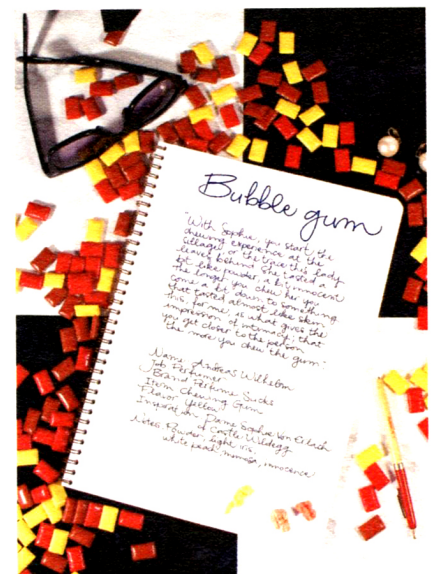 Bubble gum
"With Sophie, you start the
chewing experience at the
sillage, or the trace this lady
leaves behind. She tasted a
bit like powder, a bit innocent.
The longer you chew her, you
come a bit down to something
that tasted almost like skin.
This, for me, is what gives the
impression of intimacy; that
you get closer to the person
the more you chew the gum."
Name: Andreas Wilhelm
Job Perfumer
Brand Perfume Sucks
Item Chewing Gum
Flavor Yellow
Inspiration: Dame Sophie Von Erlach
of Castle Wildegg
Notes: Powder, light iris,
white peach, mimosa, innocence